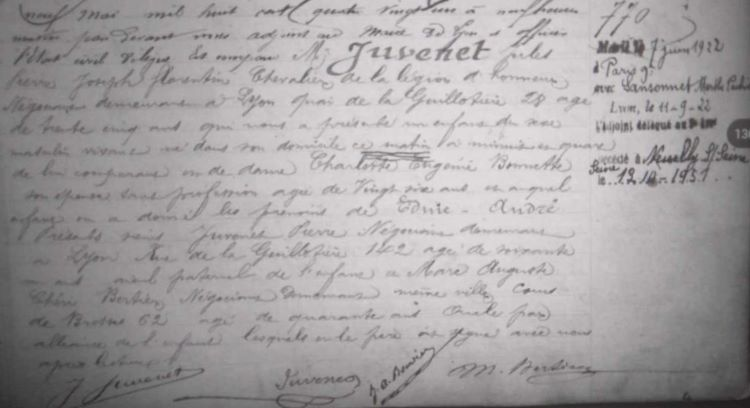 neuf mai mil huit cent quatre vingt à neuf heures
matin par devant nous adjoint au Maire de Lyon et officier
l'état civil délégué est comparu M. Juvenet Jules
Pierre Joseph Florentin Chevalier de la légion d'honneur
Négociant demeurant à Lyon quai de la Guillotière 28 agé
de trente cinq ans qui nous a présenté un enfant du sexe
masculin vivant né dans son domicile ce matin à minuit et quart
de lui comparant et de dame Charlotte Eugénie Bonnette
son épouse sans profession agée de vingt six ans et auquel
enfant on a donné les prénoms de André
Présents Juvenet Pierre Négociant demeurant
à Lyon Rue de la Guillotière 142 agé de soixante
ans aieul paternel de l'enfant et Marc Auguste
Chéri Bertier Négociant demeurant même ville Cours
de Brosses 62 agé de quarante ans oncle par
alliance de l'enfant lesquels et le père ont signé avec nous
après lecture
J. Juvenet Juvenet M. Bertier
770
Marié le 7 juin 1922
à Paris 9e
avec Sansonnet Marthe
Lyon, le 11-9-22
L'adjoint délégué
décédé à Neuilly S/Seine
Seine
le 12.10.1951
13